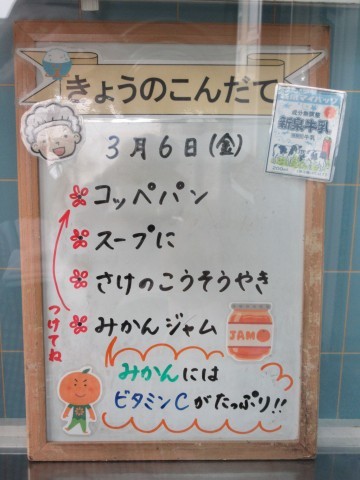 きょうのこんだて
3月6日(金)
コッペパン
スープに
さけのこうそうやき
みかんジャム
つけてね
JAM
みかんには
ビタミンCがたっぷり!!